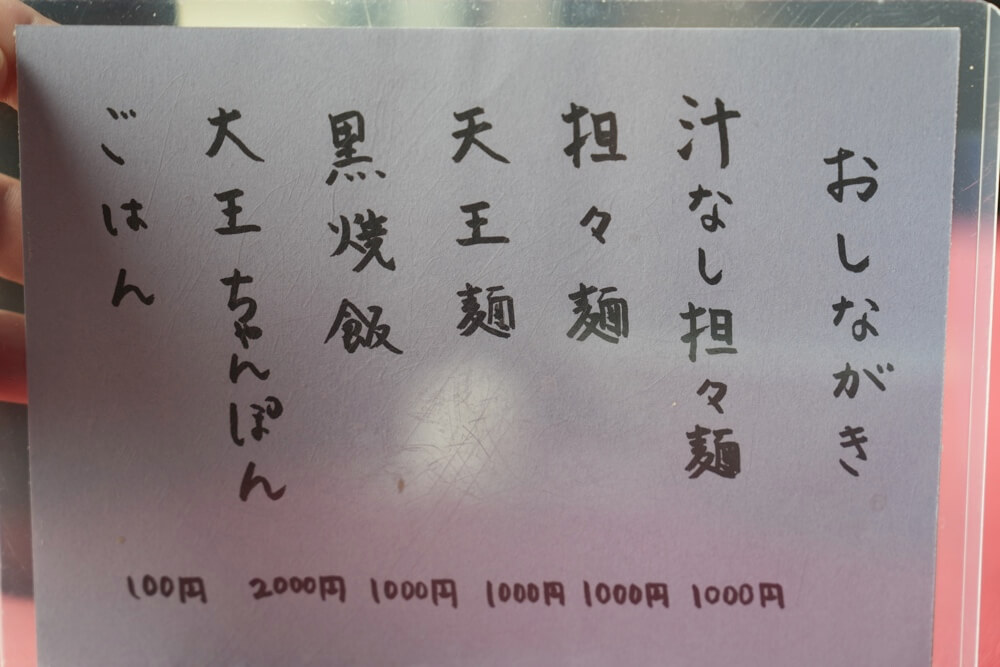 おしながき
汁なし担々麺
担々麺
天王麺
黒焼飯
大王ちゃんぽん
ごはん
100円 2000円 1000円 1000円 1000円 1000円